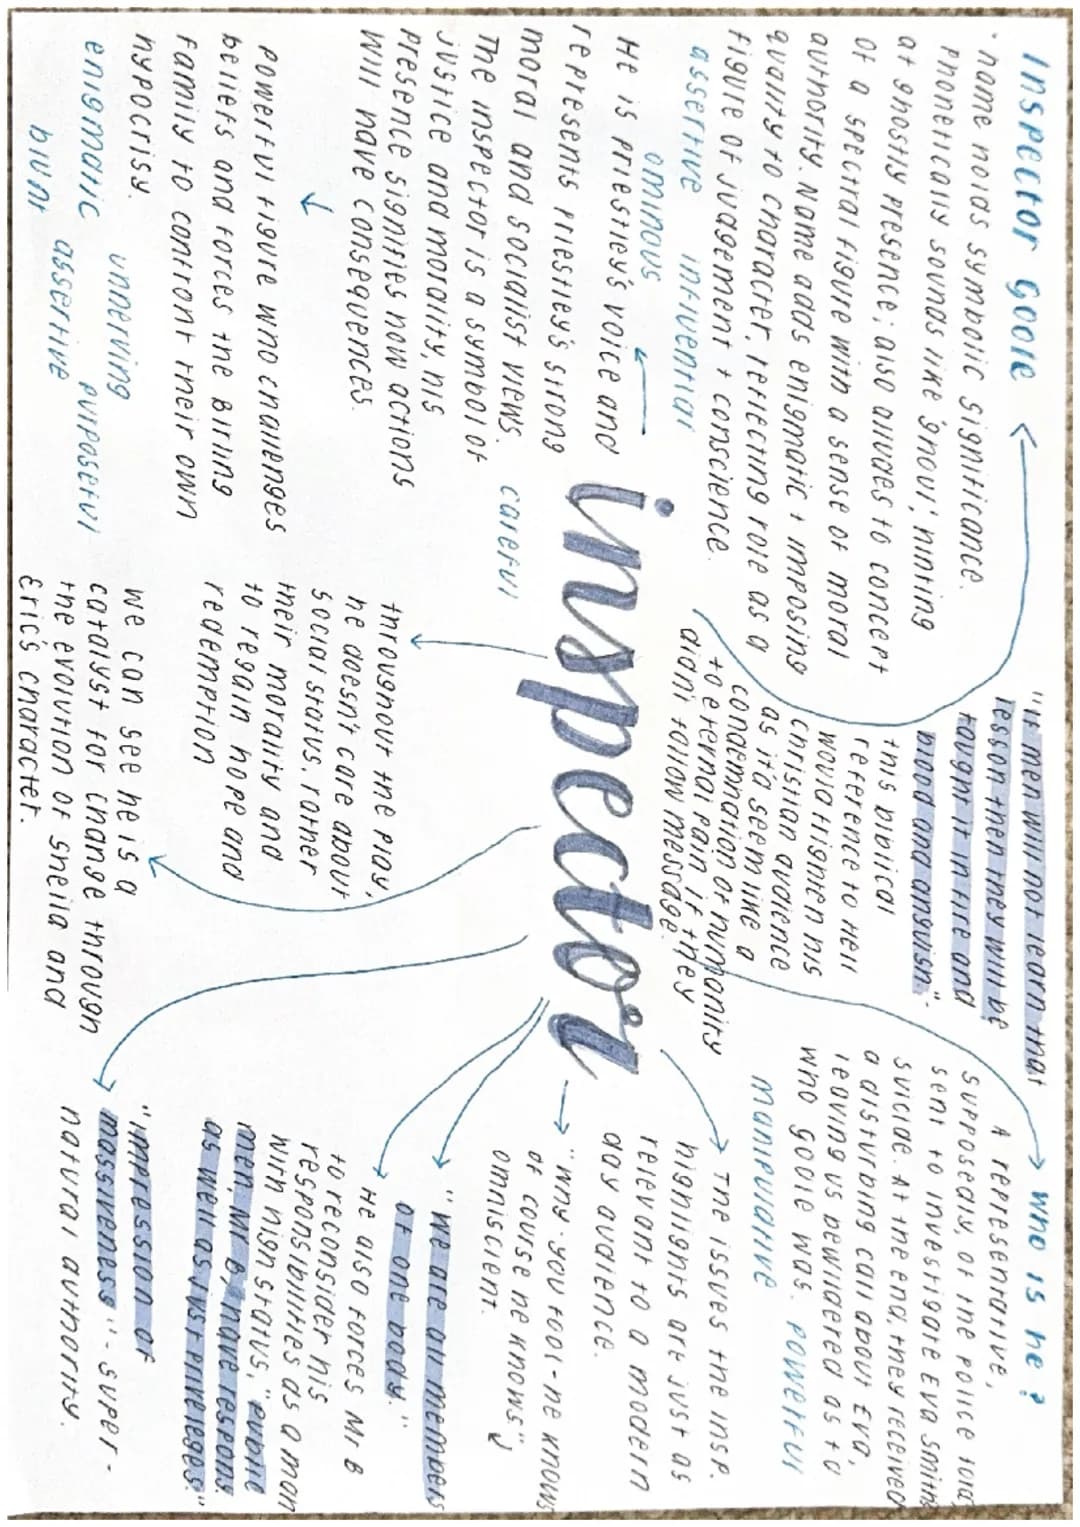 Inspector Goole
• name holds symbolic significance.
phonetically sounds like 'ghoul', hinting
at ghostly presence; also alludes to concept
of a spectral figure with a sense of moral
authority. Name adds enigmatic + imposing
quality to character, reflecting role as a
figure of judgement + conscience.
assertive influential
ominous
He is priestley's voice and
represents priestley's strong
moral and socialist views.
The inspector is a symbol of
justice and morality, his
presence signifies how actions
will have consequences.
powerful figure who challenges
beliefs and forces the Birling
family to confront their own
hypocrisy.
enigmatic unnerving purposeful
blunt assertive
careful
inspector
"If men will not learn that
lesson then they will be
taught it in fire and
blood and anguish".
this biblical
reference to Hell
would frighten his
christian audience
as it'd seem like a
condemnation of humanity
to eternal pain if they
didn't follow message.
throughout the play,
he doesn't care about
social status, rather
their morality and
to regain hope and
redemption
we can see he is a
catalyst for change through
the evolution of sheila and
Eric's character.
who is he?
A representative,
supposedly, of the police force,
sent to investigate Eva Smith
suicide. At the end, they received
a disturbing call about Eva,
leaving us bewildered as to
who goole was.
manipulative powerful
The issues the insp.
highlights are just as
relevant to a modern
day audience.
"Why - you fool - he knows
of course he knows"
omniscient.
"we are all members
of one body."
He also forces Mr B
to reconsider his
responsibilities as a man
with high status, "public
men, Mr B, have respons
as well as just privileges."
"impression of
massiveness" - super-
natural authority.